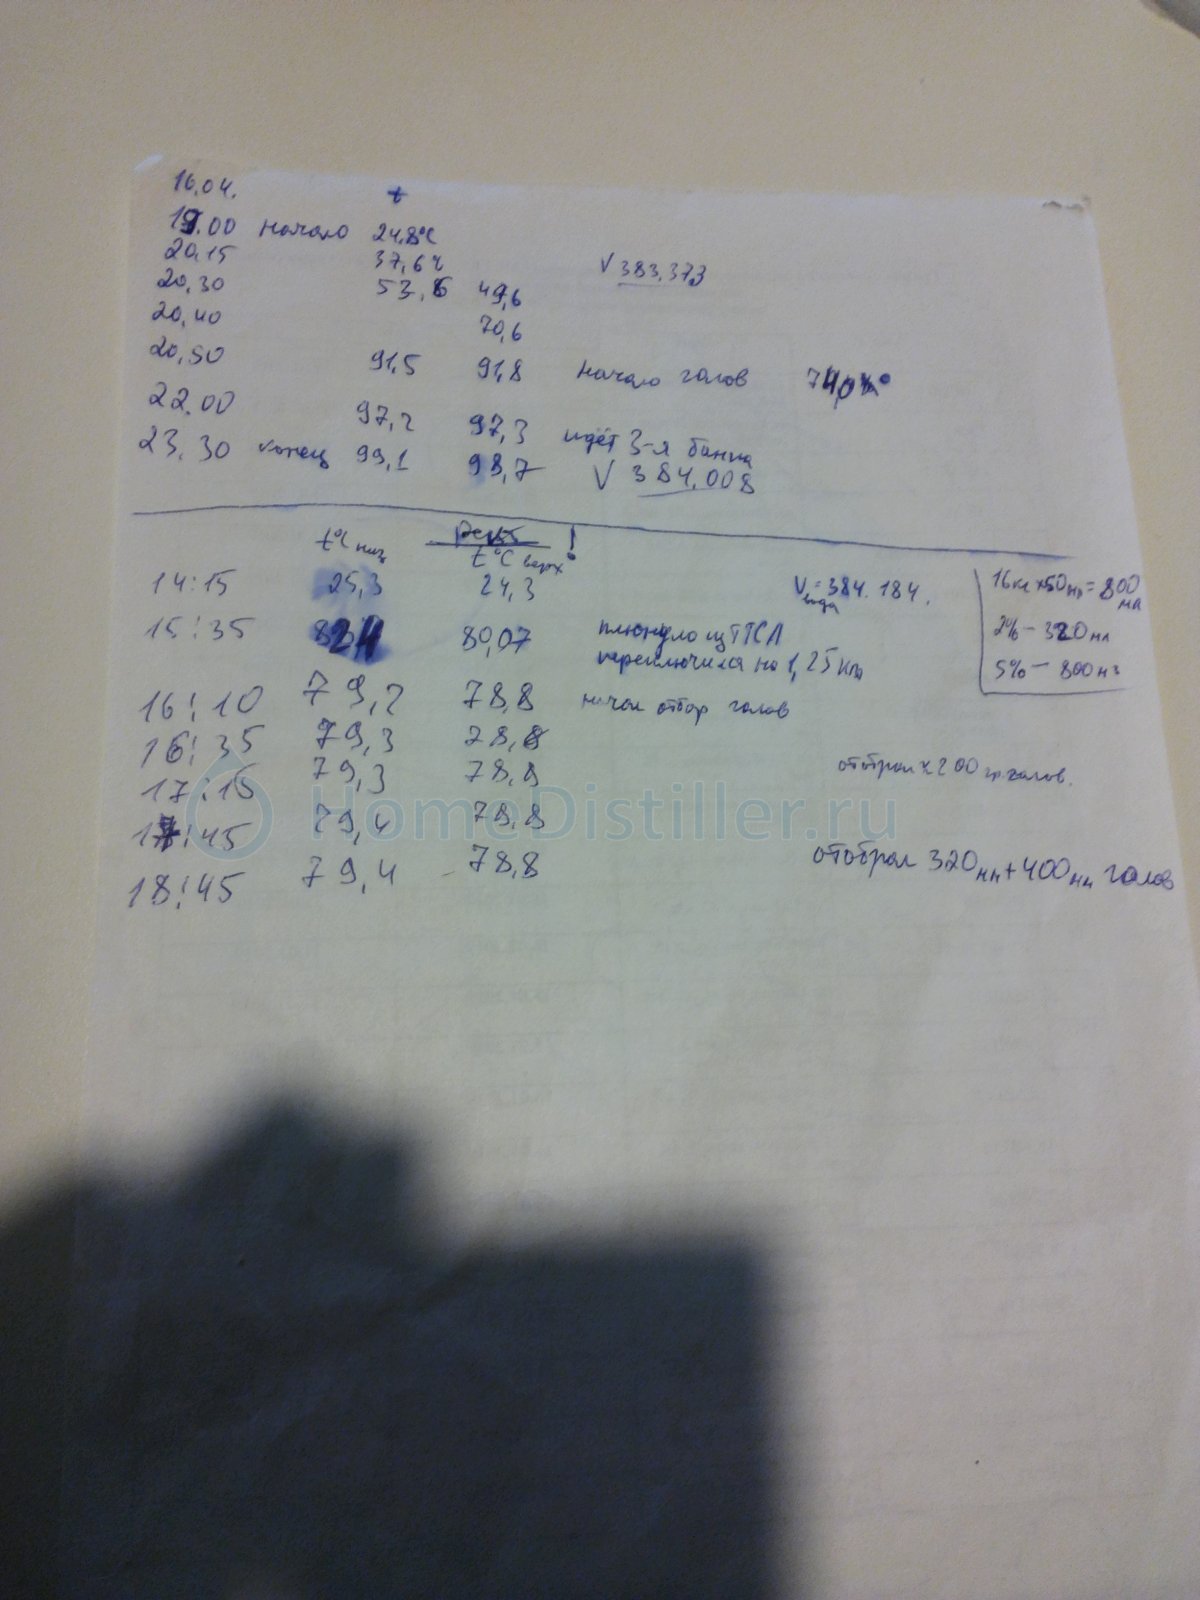 16.04. t
19.00 начало 24,8°C
20.15 37,6 V 383.373
20,30 53,6 49,6
20,40 70,6
20,50 91,5 91,8 начало голов
22.00 97,2 97,3 идёт 3-я банка
23.30 конец 99,1 98,7 V 384.008
Рект !
t°C низ t°C верх
14:15 25,3 24,3 V вода = 384.184. 16кг х50мл=800 мл
15:35 80,07 плюнуло из ТСА 2% - 320мл
переключился на 1,25 кВт 5% - 800мл
16:10 79,2 78,8 начал отбор голов
16:35 79,3 78,8
17:15 79,3 78,8 отобрал 200 гр голов.
HomeDistiller.ru
17:45 79,4 78,8
18:45 79,4 78,8 отобрал 320мл+400мл голов